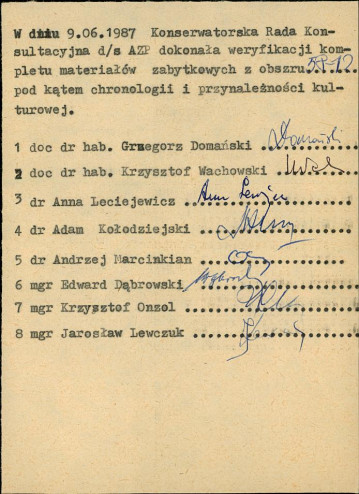 W dniu 9.06.1987 Konserwatorska Rada Kon-
sultacyjna d/s AZP dokonała weryfikacji kom-
pletu materiałów zabytkowych z obszru
pod kątem chronologii i przynależności kul-
turowej.
1 doc dr hab. Grzegorz Domański
2 doc dr hab. Krzysztof Wachowski
3 dr Anna Leciejewicz
4 dr Adam Kołodziejski
5 dr Andrzej Marcinkian
6 mgr Edward Dąbrowski
7 mgr Krzysztof Onzol
8 mgr Jarosław Lewczuk